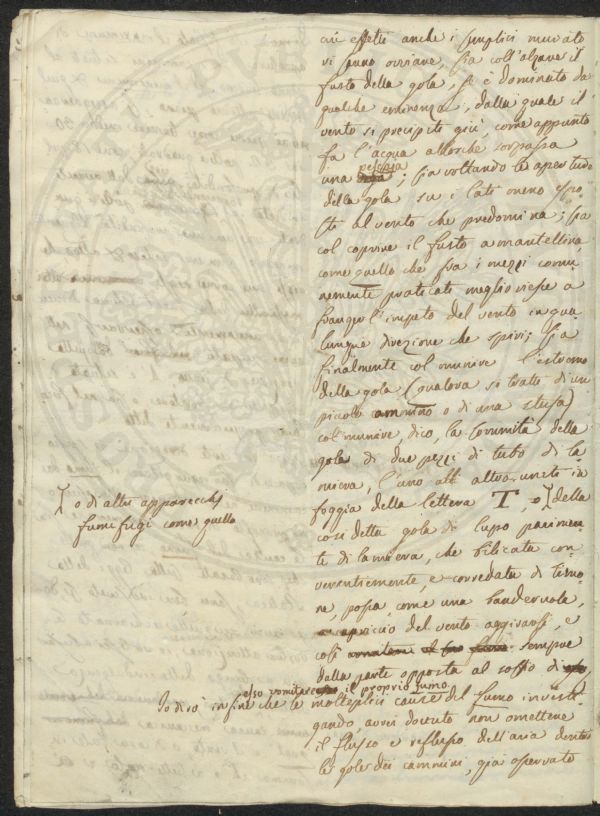 cui effetti anche i semplici murato
ri sanno ovviare, sia coll'alzare il
fusto della gola, se è dominato da
qualche eminenza, dalla quale il
vento si precipiti giù, come appunto
fa l'acqua allorchè sorpassa
una pescaja; sia voltando le aperture
della gola su i lati meno espo
sti al vento che predomina; sia
col coprire il fusto a mantellina,
come quello che fra i mezzi comu-
nemente praticati meglio riesce a
franger l'impeto del vento in qua
lunque direzione che spiri; sia
finalmente col munire l'estremo
della gola (qualora si tratti di un
piccolo cammino o di una stufa)
col munire, dico, la sommità della
gola di due pezzi di tubo di la
miera, l'uno all'altro uniti in
foggia della lettera T, o della
o di altri apparecchi
fumifugi come quello
così detta gola di lupo parimen-
te di lamiera, che bilicata con
venientemente, e corredata di timo-
ne, possa, come una banderuola,
a capriccio del vento aggirarsi, e
così sempre
dalla parte opposta al soffio di
esso vomitare il proprio fumo
Io dirò infine che le molteplici cause del fumo investi-
gando, avrei dovuto non omettere
il flusso e reflusso dell'aria dentro
le gole dei cammini, già osservato